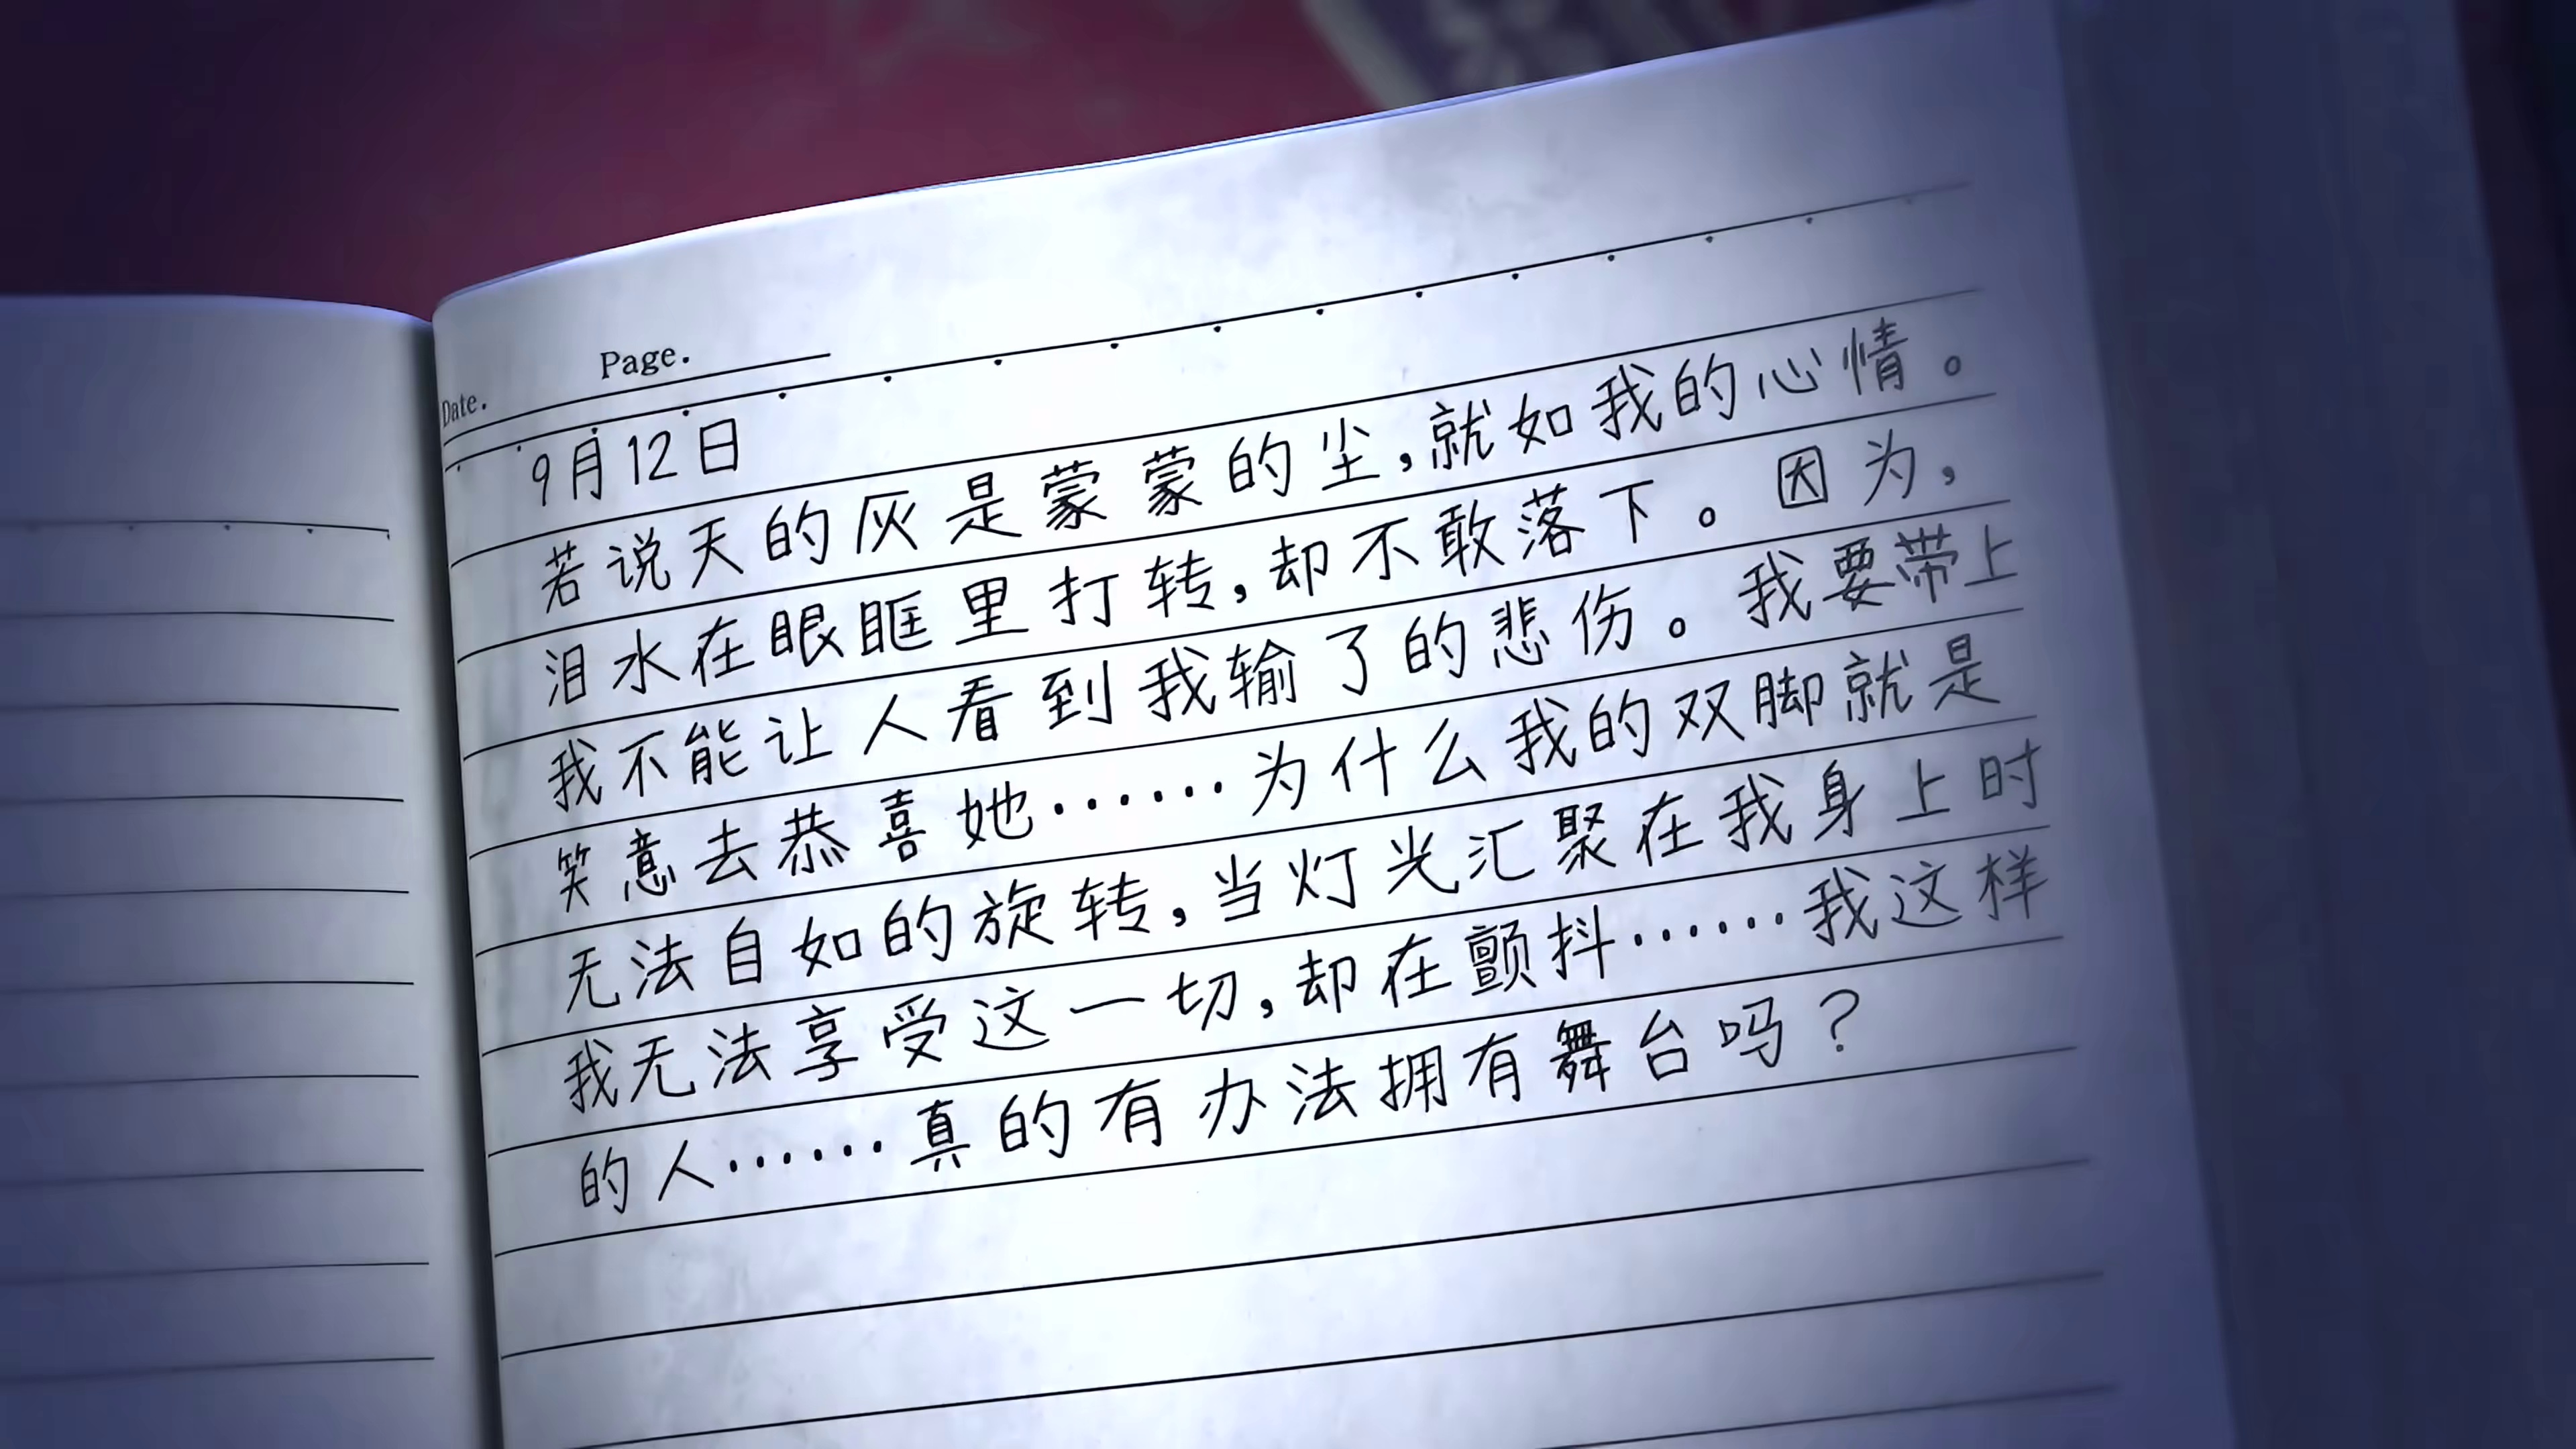 Page.
Date.
9月12日
若说天的灰是蒙蒙的尘,就如我的心情。
泪水在眼眶里打转,却不敢落下。因为,
我不能让人看到我输了的悲伤。我要带上
笑意去恭喜她……为什么我的双脚就是
无法自如的旋转,当灯光汇聚在我身上时
我无法享受这一切,却在颤抖……我这样
的人……真的有办法拥有舞台吗?